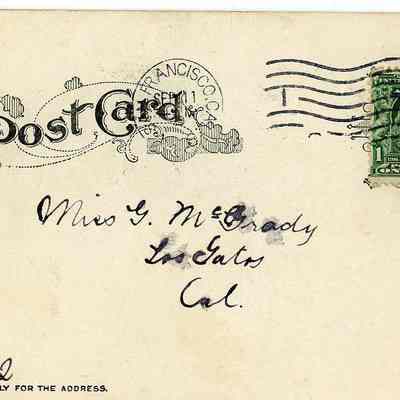 Post Card
FRANCISCO, CA
SEP 1
1 CENT
Miss G. McGrady
Los Gatos
Cal.
LY FOR THE ADDRESS.